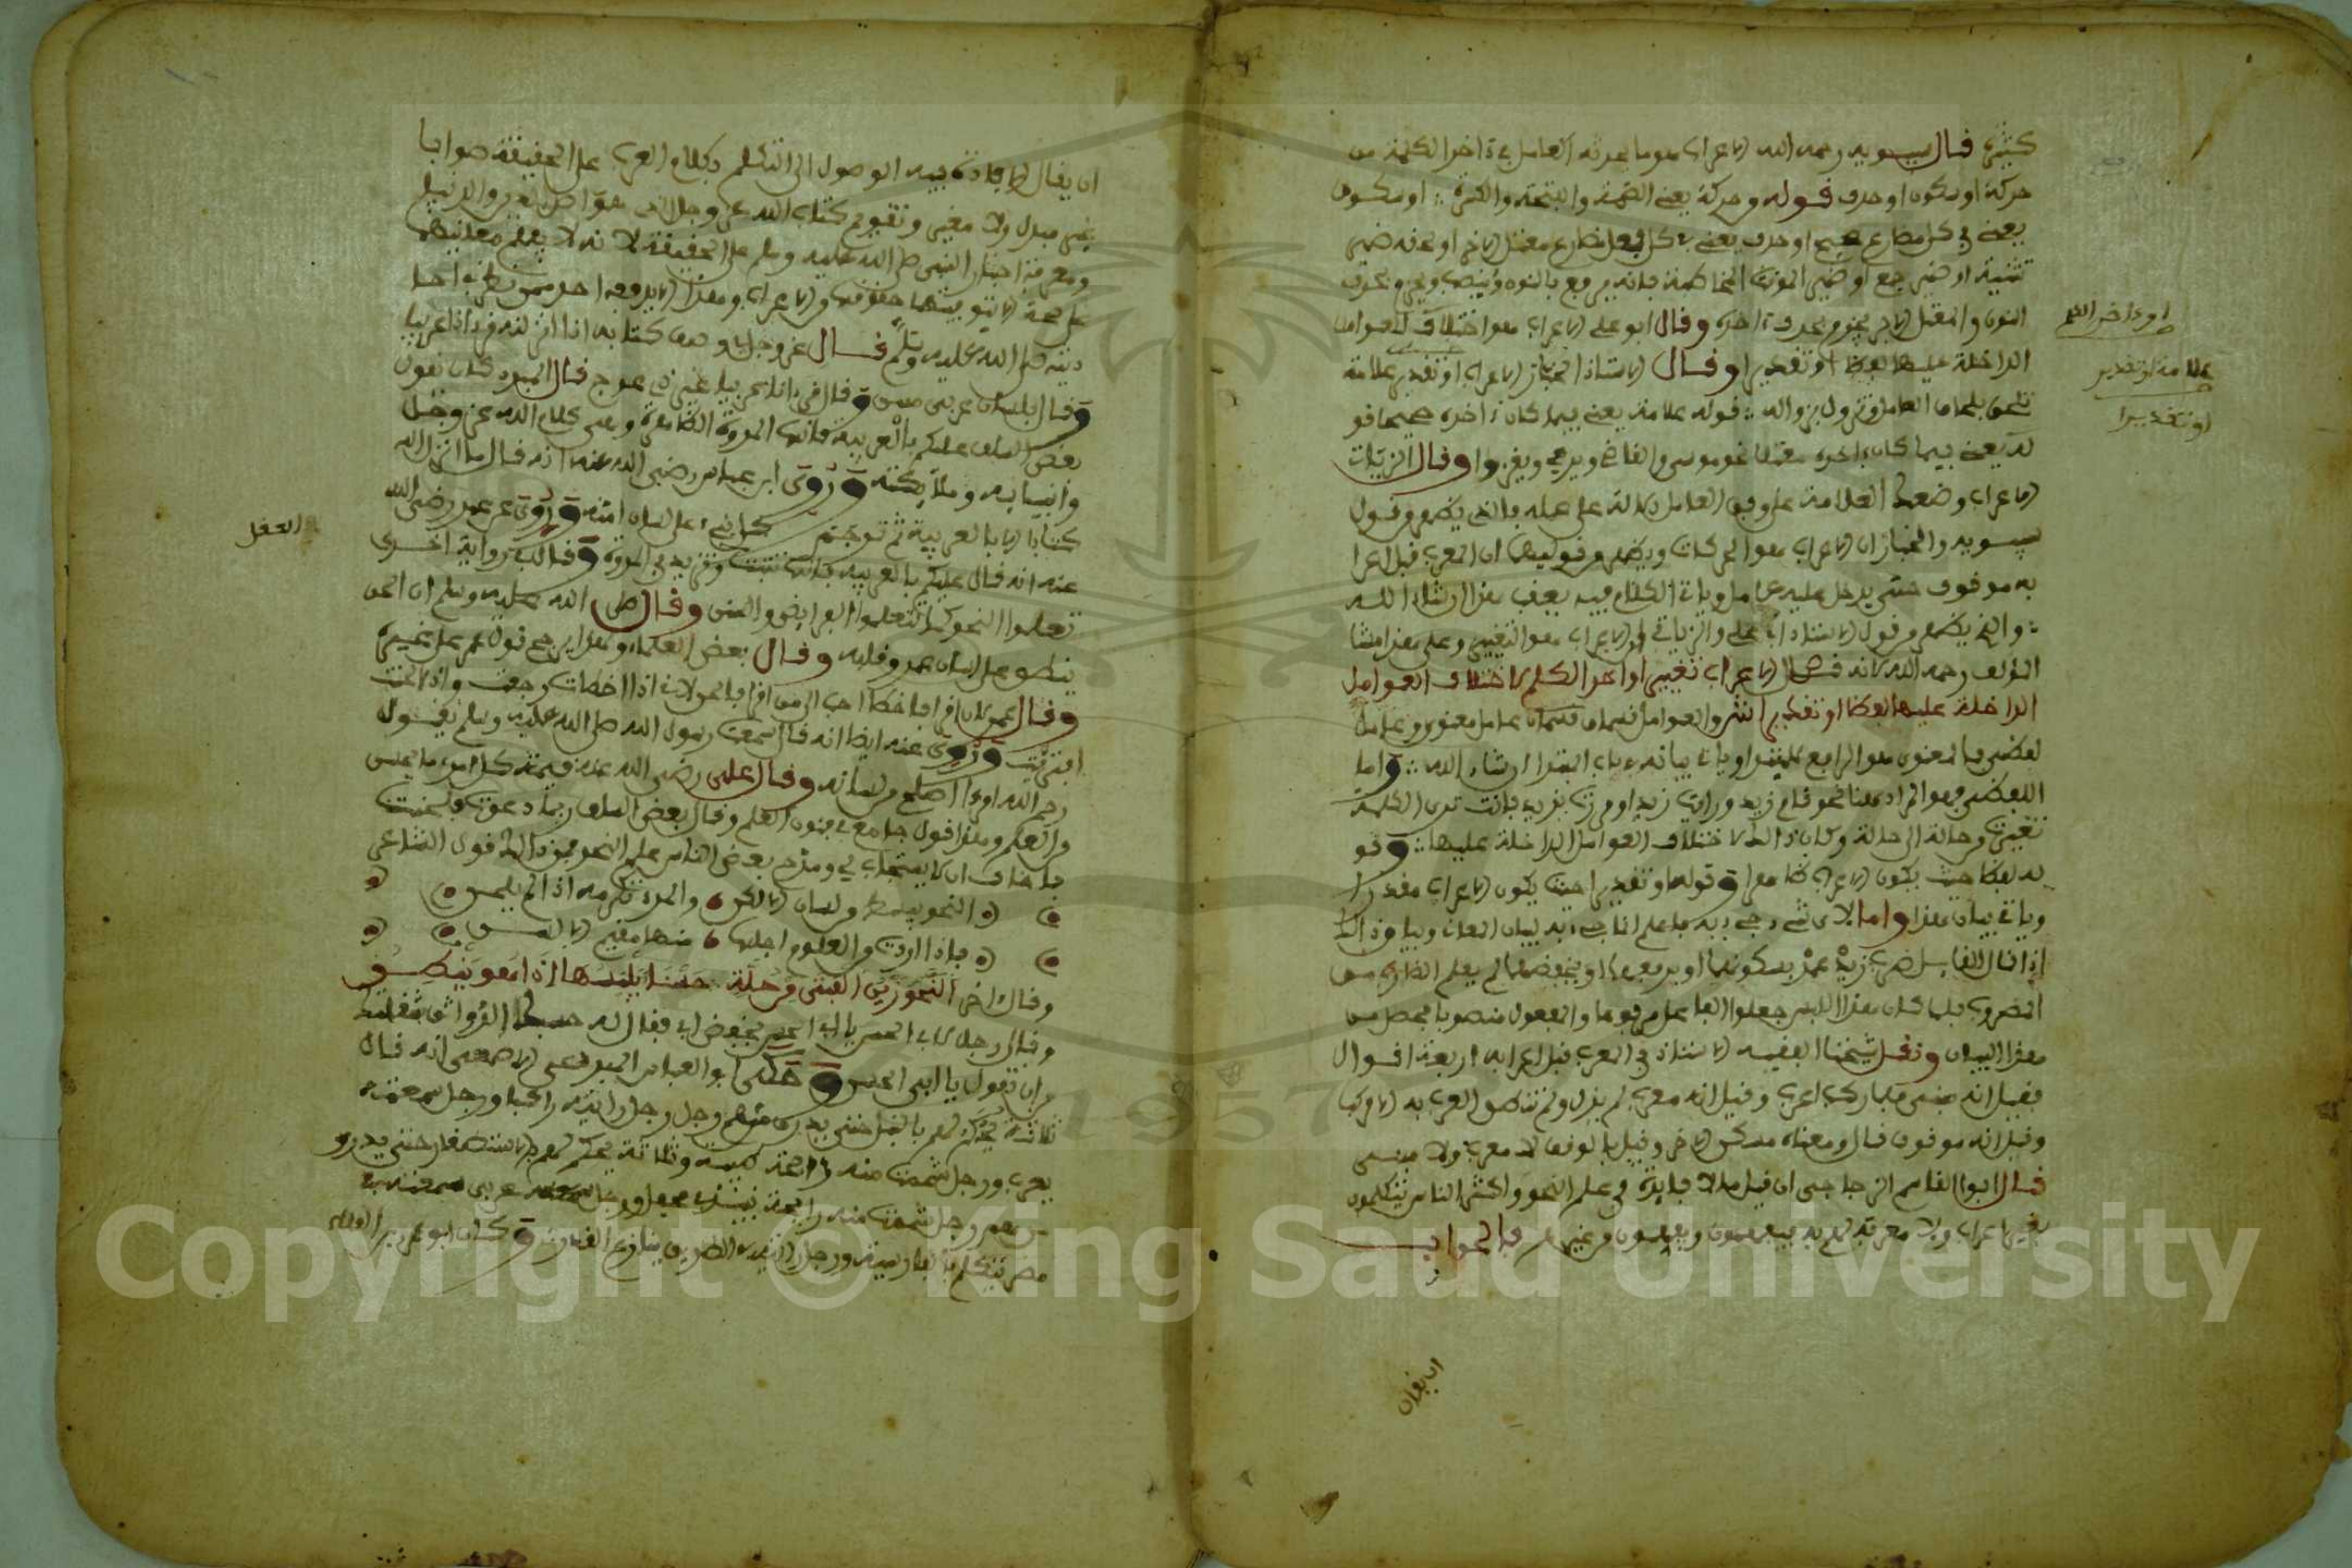 كثير قال سيبويه رحمه الله الاعراب هو ما يحدثه العامل في ءاخر الكلمة من
حركة او سكون او حذف قوله وحركة يعني الضمة والفتحة والكسرة او سكون
يعني في كل مضارع صحيح او حذف يعني كل فعل مضارع معتل الاخر او لحقه ضمير
تثنية او ضمير جمع او ضمير المونث المخاطبة فانه يرفع بالنون وينصب ويجزم بحذف
النون والمعتل الاخر يجزم بحذف ءاخره وقال ابو علي الاعراب هو اختلاف العوامل
او ءاخر الكلم
الداخلة عليها لفظا او تقديرا وقال الاستاذ الخباز الاعراب او تقدير علامة
علامة او تقدير
تلحق بلحاق العامل وتزول بزواله قوله علامة يعني فيما كان ءاخره صحيحا وقو
او تقديرا
له يعني فيما كان ءاخره معتلا نحو موسى والقاضي ويرمي ويغزوا وقال الزيات
الاعراب وضعك العلامة على وفق العامل دلالة على عمله فالذي يظهر من قول
سيبويه والخباز ان الاعراب هو الحركات ويظهر من قوليهما ان المعرب قبل اعرا
به موقوف حتى يدخل عليه عامل وياتي الكلام فيه بعد هذا ان شاء الله
والذي يظهر من قول الاستاذ ابي علي والزيات ان الاعراب هو التغيير وعلى هذا مشا
المؤلف رحمه الله لانه قال الاعراب تغيير اواخر الكلم لاختلاف العوامل
الداخلة عليها لفظا او تقديرا انتهى والعوامل قسمان عامل معنوي وعامل
لفظي فالمعنوي هو الرافع للمبتدا وياتي بيانه في باب المبتدا ان شاء الله واما
اللفظي فهو المراد هنا نحو قام زيد ورايت زيدا ومررت بزيد فانت ترى الكلمة
تغيرت من حالة الى حالة وكان ذالك لاختلاف العوامل الداخلة عليها وقو
له لفظا حيث يكون الاعراب ظاهرا وقوله او تقديرا حيث يكون الاعراب مقدرا
وياتي بيان هذا واما لاي شيء جيء به فاعلم انما جيء به لبيان المعاني وبيان ذالك
اذا قال القايل ضرب زيد عمر بسكونهما او برفعهما او بخفضهما لم يعلم الضارب من
المضروب فلما كان هذا اللبس جعلوا الفاعل مرفوعا والمفعول منصوبا فحصل من
هذا البيان ونقل شيخنا الفقيه الاستاذ في المعرب قبل اعرابه اربعة اقوال
فقيل انه مبني فلما ركب اعرب وقيل انه معرب لم يزل ولم تنطق العرب به الا مركبا
وقيل انه موقوف قال ومعناه مسكن الاخر وقيل بالوقف لا معرب ولا مبني
قال ابو القاسم الزجاجي ان قيل ما الفايدة في علم النحو واكثر الناس يتكلمون
بغير اعراب ولا معرفة لهم به فيفهمون ويفهمون غيرهم فالجواب
ان يقال
ان يقال الافادة فيه الوصول الى التكلم بكلام العرب على الحقيقة صوابا
غير مبدل ولا مغير وتقويم كتاب الله عز وجل الذي هو اصل الدين والدنيا
ومعرفة اخبار النبي صلى الله عليه وسلم على الحقيقة لانه لا يفهم معانيها
على صحة الا بتوفيتها حقوقها من الاعراب وهذا لا يدفعه احد ممن نظر في احا
ديثه صلى الله عليه وسلم قال عز وجل في وصف كتابه انا انزلناه قرءانا عربيا
وقال بلسان عربي مبين وقال قرءانا عربيا غير ذي عوج قال المبرد كان يقول
بعض السلف عليكم بالعربية فانها المروة الظاهرة وهي كلام الله عز وجل
وانبيايه وملايكته وروى ابن عباس رضي الله عنه انه قال ما انزل الله
كتابا الا بالعربية ثم ترجم كل نبيء على لسان امته وروي عن عمر رضي الله
العقل
عنه انه قال عليكم بالعربية فانها تثبت وتزيد في المروة وقال في رواية اخرى
تعلموا النحو كما تتعلموا الفرايض والسنن وقال صلى الله عليه وسلم ان الحق
ينطق على لسان عمر وقلبه وقال بعض العلماء وهذا يرجح قول عمر على غيره
وقال عمر لان اقرا فاخطا احب الي من اقرا فالحن لاني اذا اخطات رجعت واذا لحنت
افتريت وروي عنه ايضا انه قال سمعت رسول الله صلى الله عليه وسلم يقول
رحم الله امرءا اصلح من لسانه وقال علي رضي الله عنه قيمة كل امرء ما يحسن
من العلم وهذا قول جامع في فنون العلم وقال بعض السلف ربما دعوت فلحنت
فاخاف ان لا يستجاب لي ومدح بعض الناس علم النحو فمن ذالك قول الشاعر
النحو يبسط من لسان الالكن والمرء تكرمه اذا لم يلحن
فاذا اردت من العلوم اجلها فاجلها منها مقيم الالسن
وقال اخر النحو زين الفتى وحلة حسنا يلبسها اذا هو ينطق
وقال رجل لابي الحسن يا ابا الحسن بخفض اب فقال له
من ان تقول يا ابي الحسن وحكى ابو العباس المبرد عن الاصمعي انه قال
ثلاثة يحكم لهم بالنبل حتى يدرى من هم وهم رجل رايته راكبا ورجل سمعته
يعرب ورجل شممت منه رايحة طيبة وثلاثة يحكم لهم بالاستصغار حتى يدرى
من هم رجل شممت منه رايحة نبيذ في محفل ورجل سمعته في مصر عربي
مصر يتكلم بالفارسية ورجل رايته في الطريق ينازع القدر وكان ابو عمرو بن العلاء